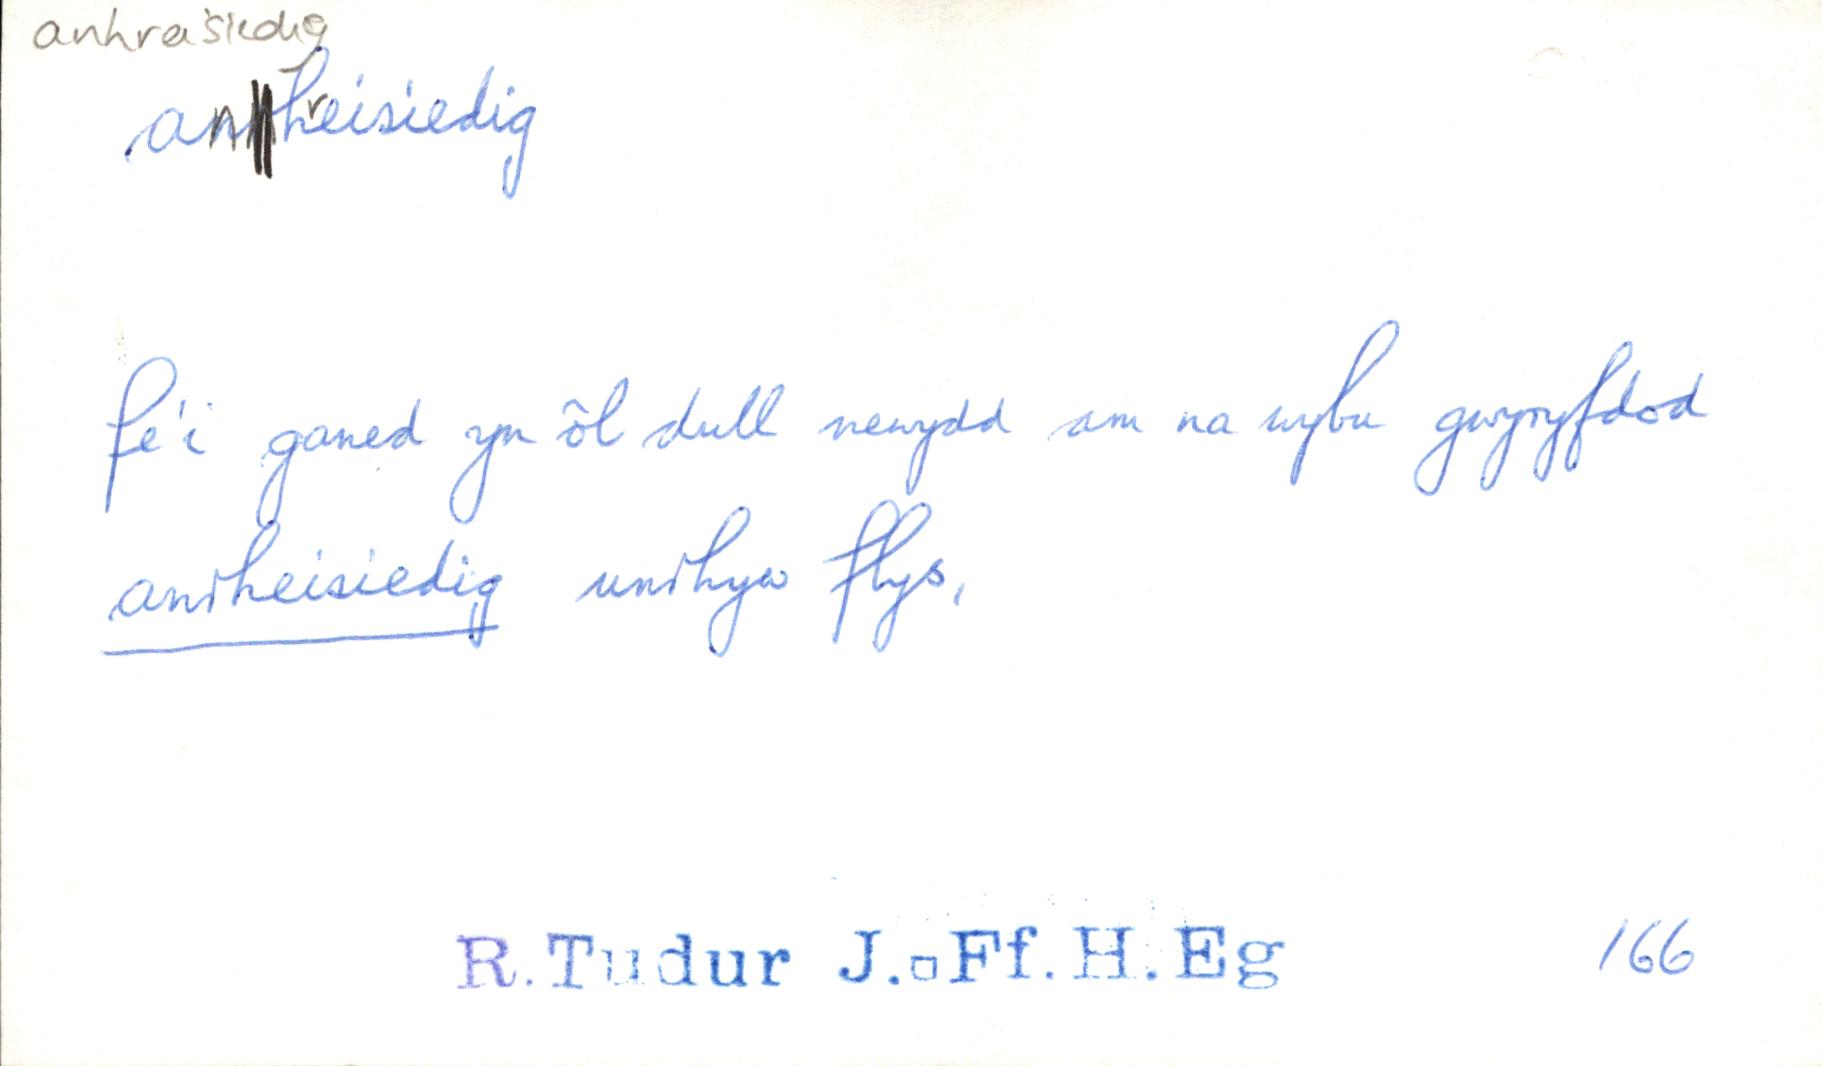 anhreisiedig
anhreisiedig
fe'i ganed yn ôl dull newydd am na wybu gwyryfdod
anrheisiedig unrhyw flys,
R.Tudur J.▫Ff.H.Eg 166